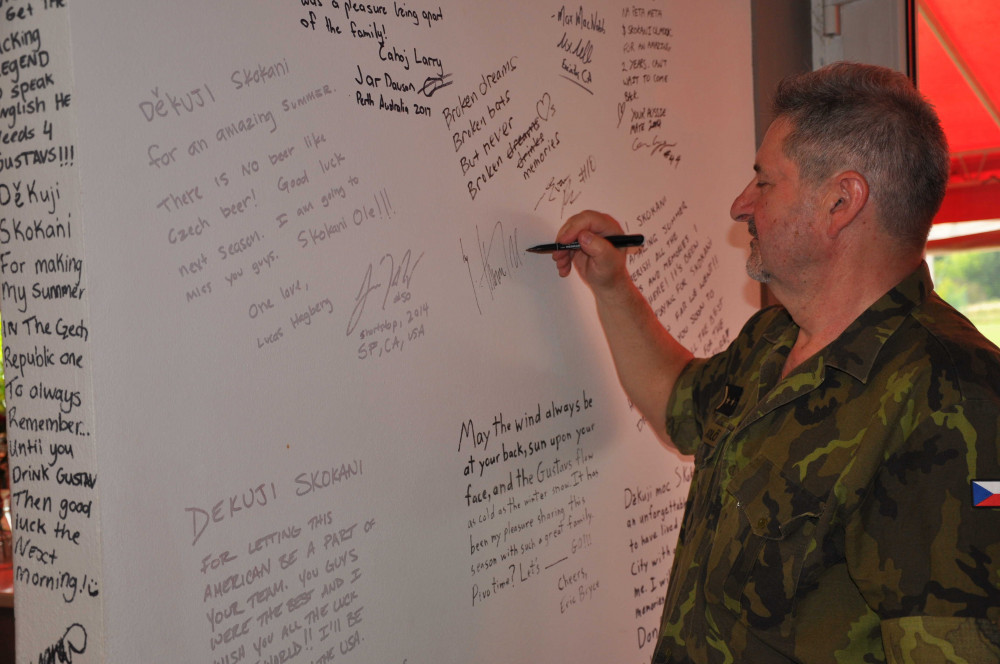 Get The
ucking
LEGEND
o speak
English He
Needs 4
GUSTAVS!!!
Děkuji
Skokani
For making
My summer
IN The Czech
Republic one
To always
Remember...
Until you
DRINK GUSTAV
Then good
luck the
Next
morning!
DěKUJI SKOKANI
for an amazing summer.
There is no beer like
Czech beer! Good luck
next season. I am going to
miss you guys. Skokani Ole!!!
One love,
Lucas Hegberg
#50
shortstop, 2014
SF, CA, USA
DEKUJI SKOKANI
FOR LETTING THIS
AMERICAN BE A PART OF
YOUR TEAM. YOU GUYS
WERE THE BEST AND I
WISH YOU ALL THE LUCK
WORLD!! I'LL BE
THE USA.
was a pleasure being apart
of the family!
Larry
Jar Dawson
Perth Australia 2017
Broken dreams
Broken bats
But never ♡s
Broken dreams
drinks
memories
#10
May the wind always be
at your back, sun upon your
face, and the Gustavs flow
as cold as the winter snow. It has
been my pleasure sharing this
season with such a great family.
Pivo time? Let's ___ GO!!!
Cheers,
Eric
CA
FOR AN AMAZING
2 YEARS. CAN'T
WAIT TO COME
YOUR AUSSIE
MATE
SKOKANI
SUMMER
ALL THE
AND MEMORIES I
HERE! IT'S BEEN
PLAYING FOR SKOKANI
YOU SOON TO
Děkuji moc Sko
an unforgettab
to have lived
City with
me. I wi
memories
Don